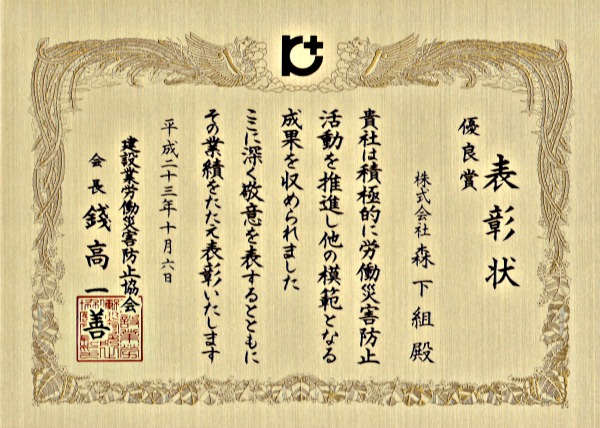 表彰状
優良賞
株式会社 森下組 殿
貴社は積極的に労働災害防止
活動を推進し他の模範となる
成果を収められました
ここに深く敬意を表するとともに
その業績をたたえ表彰いたします
平成二十三年十月六日
建設業労働災害防止協会
会長 錢高一善